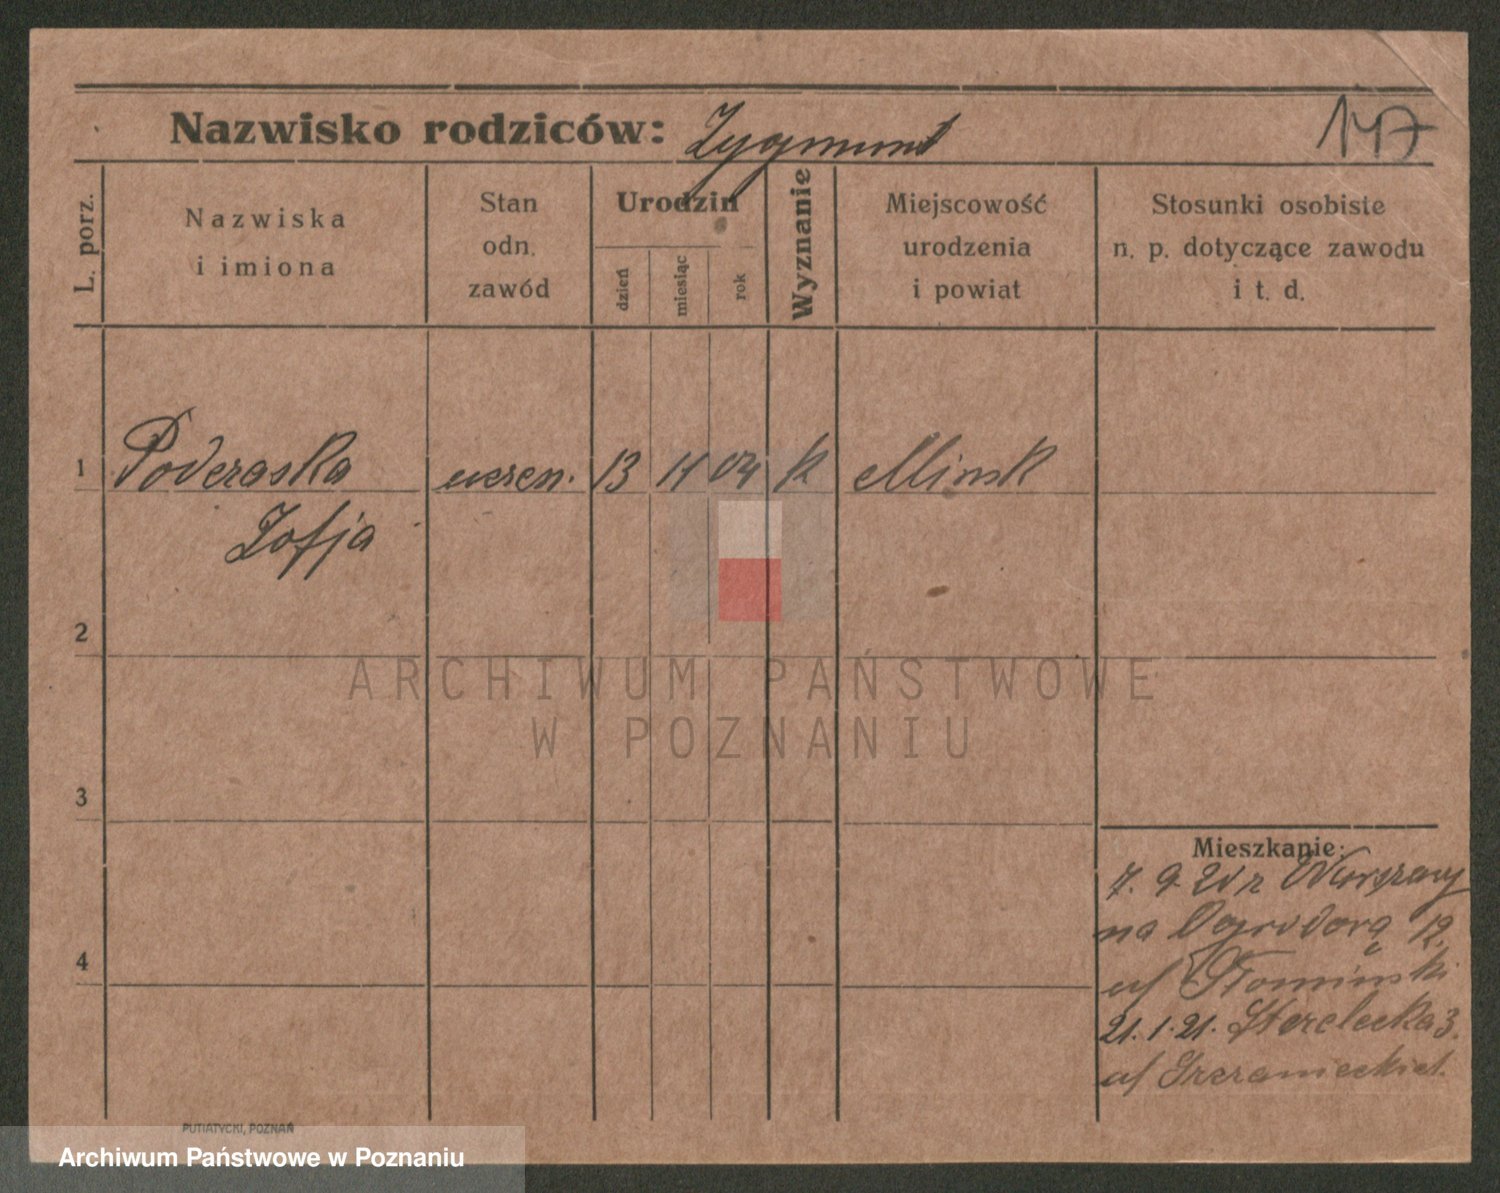 147
Nazwisko rodziców: Zygmunt
L. porz.
Nazwiska
i imiona
Stan
odn.
zawód
Urodzin
dzień
miesiąc
rok
Wyznanie
Miejscowość
urodzenia
i powiat
Stosunki osobiste
n. p. dotyczące zawodu
i t. d.
1 Poderaska uczen. 13 11 04 k Minsk
Zofja
2
3
4
Mieszkanie:
7. 9 20 z Warszawy
na Ogrodorą 12.
Słomiński
21.1.21. Strzelecka 3.
PUTIATYCKI, POZNAŃ
ARCHIWUM PAŃSTWOWE
W POZNANIU
Archiwum Państwowe w Poznaniu